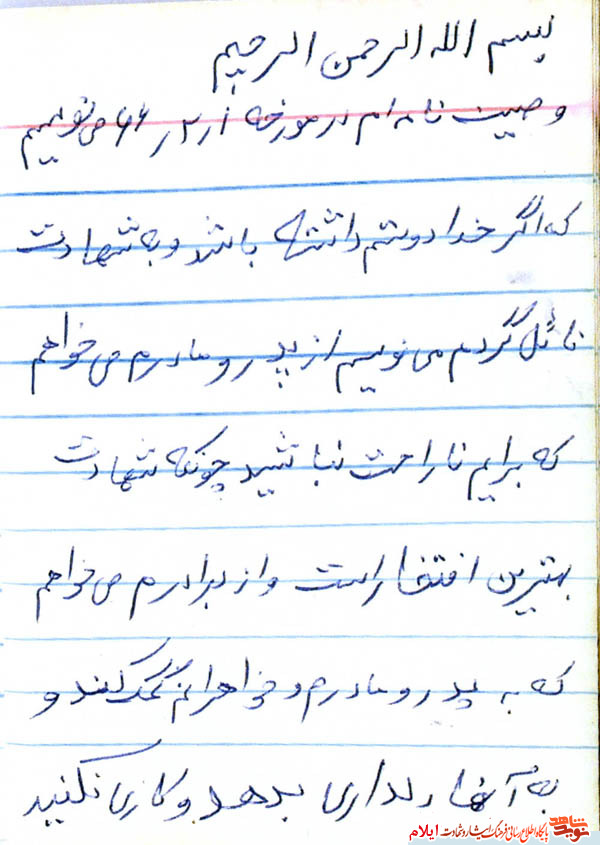 بسم الله الرحمن الرحیم
وصیت نامه ام در مورخه ۶۶/۲/۱ می نویسم
که اگر خدا دوستم داشته باشد و به شهادت
نائل گردم می نویسم از پدر و مادرم می خواهم
که برایم ناراحت نباشید چونکه شهادت
بهترین افتخار است و از برادرم می خواهم
که به پدر و مادرم و خواهرانم کمک کند و
به آنها دلداری بدهد و کاری نکنید
نوید شاهد
پایگاه اطلاع رسانی فرهنگ ایثار و شهادت ایلام